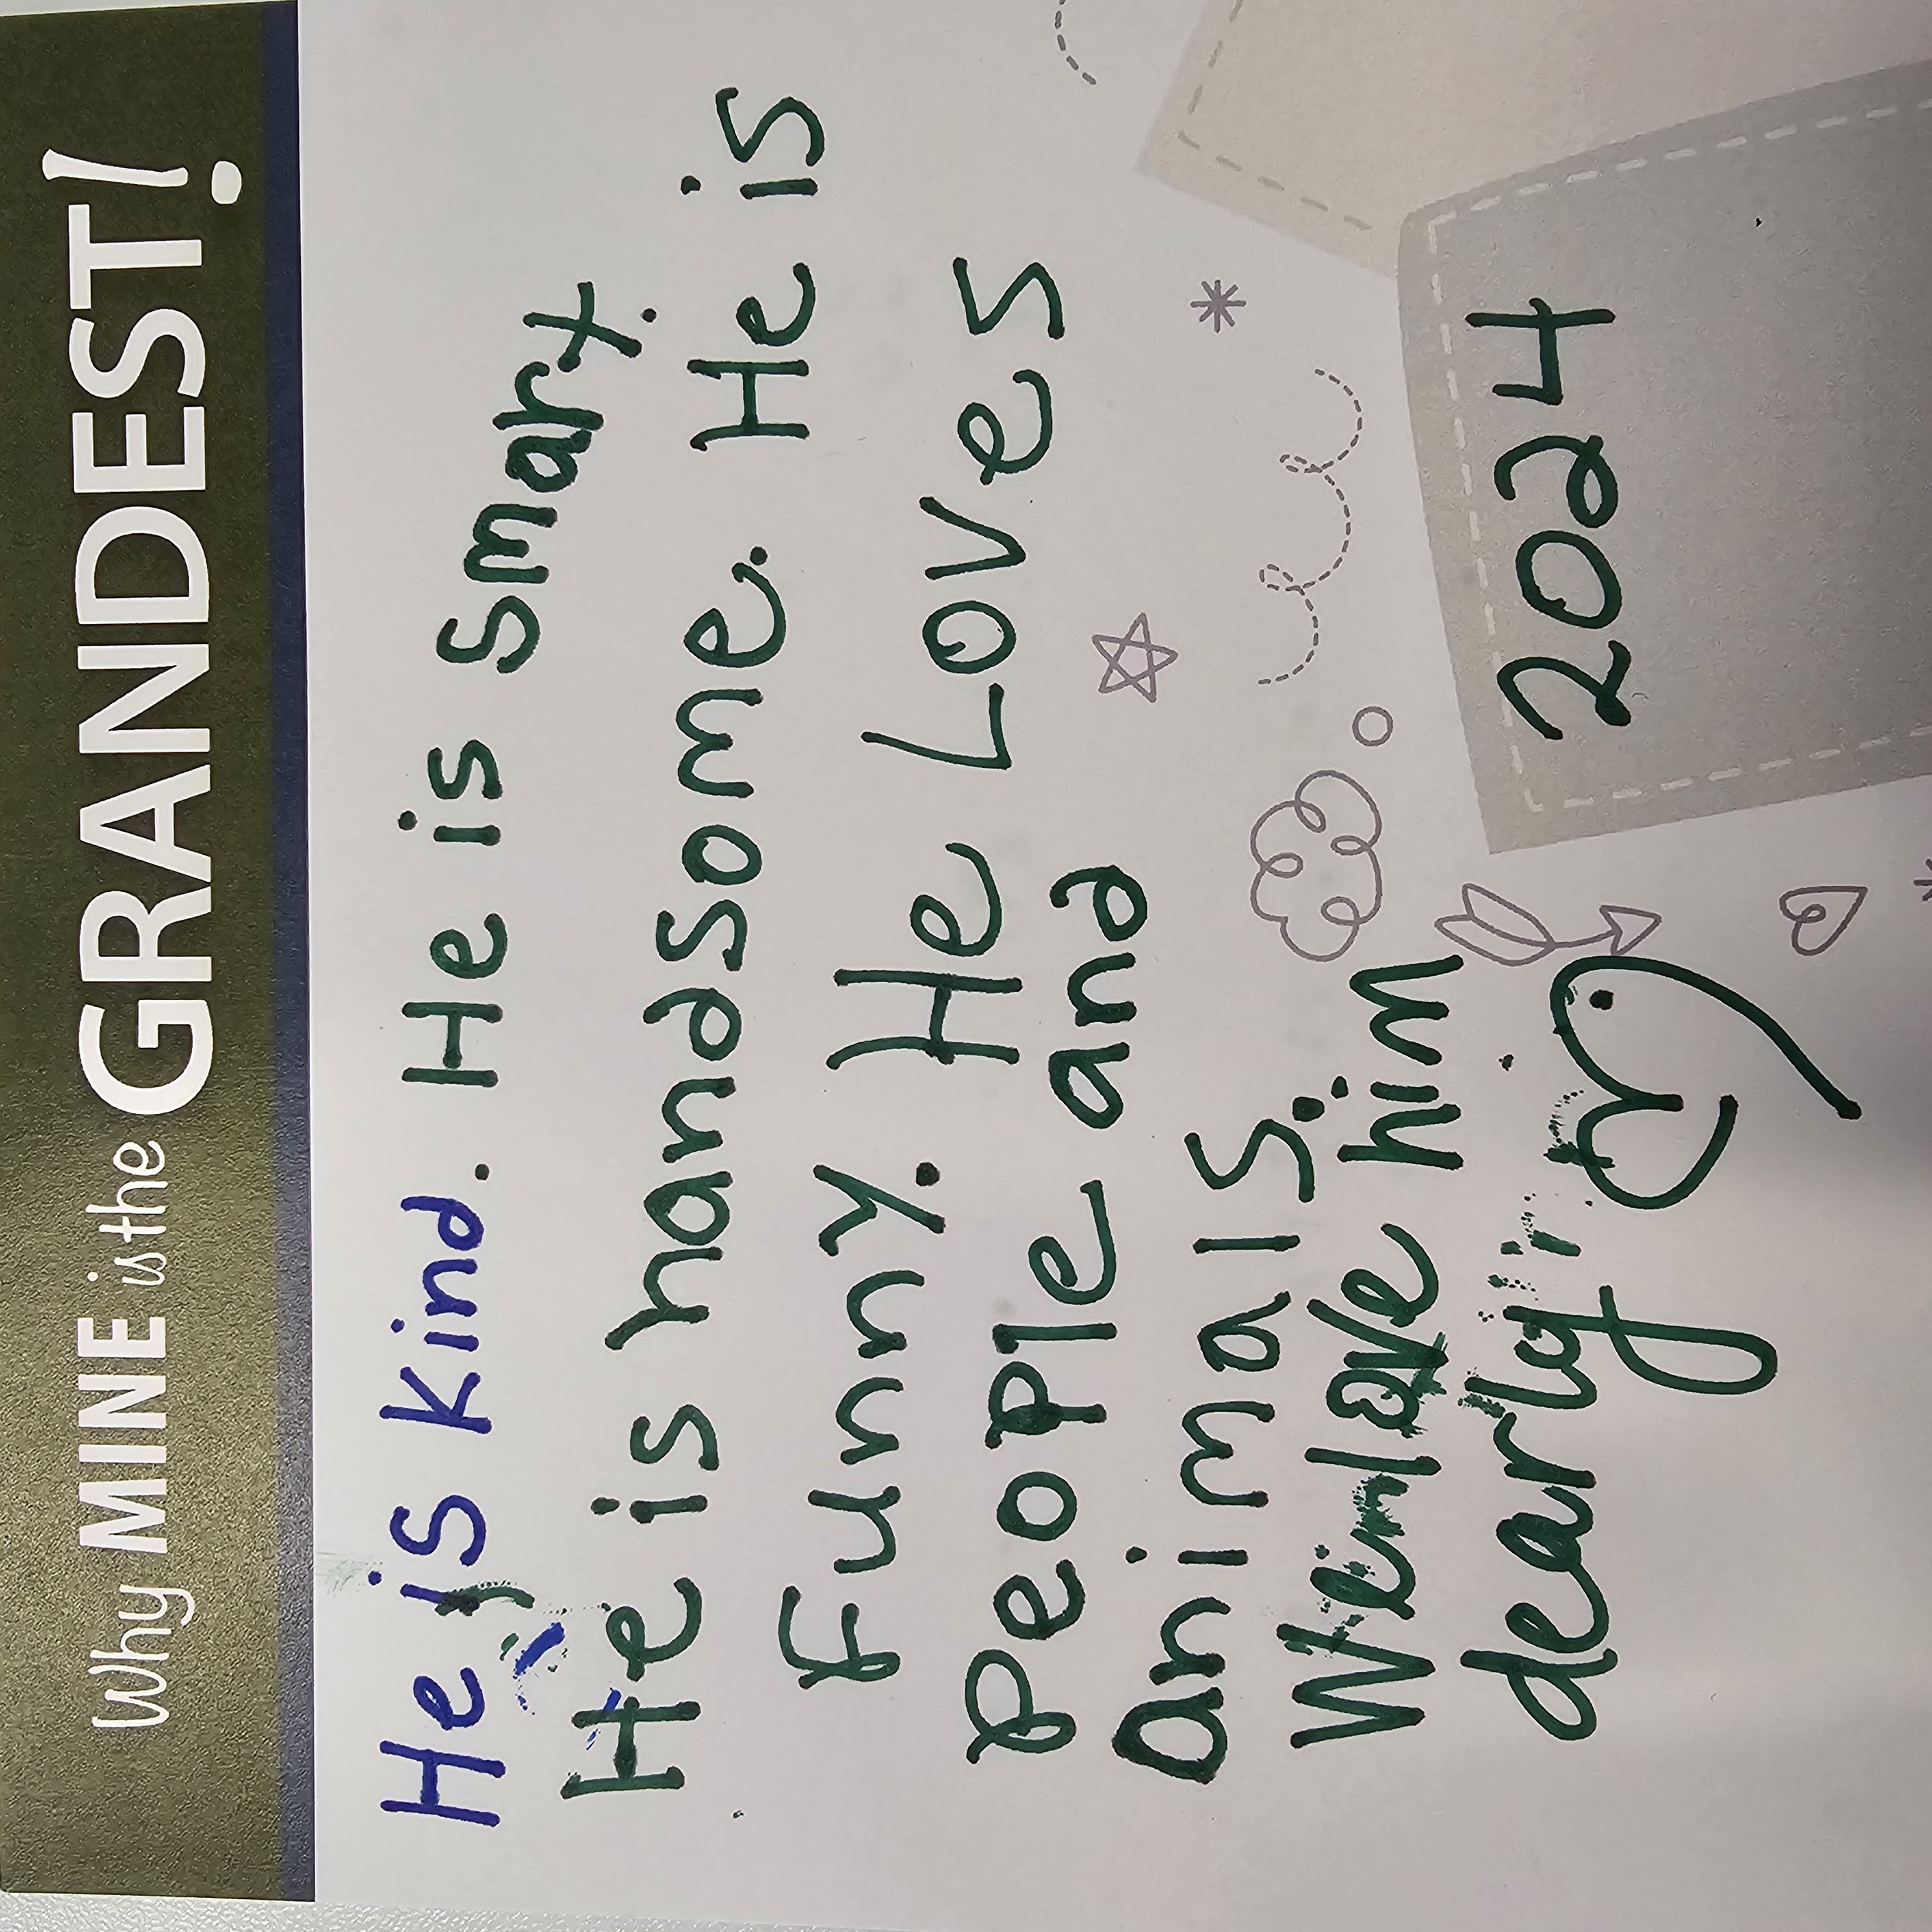 Why MINE is the GRANDEST!
He is kind. He is smart.
He is handsome. He is
funny. He Loves
people and
animals.
We love him
dearly
2024